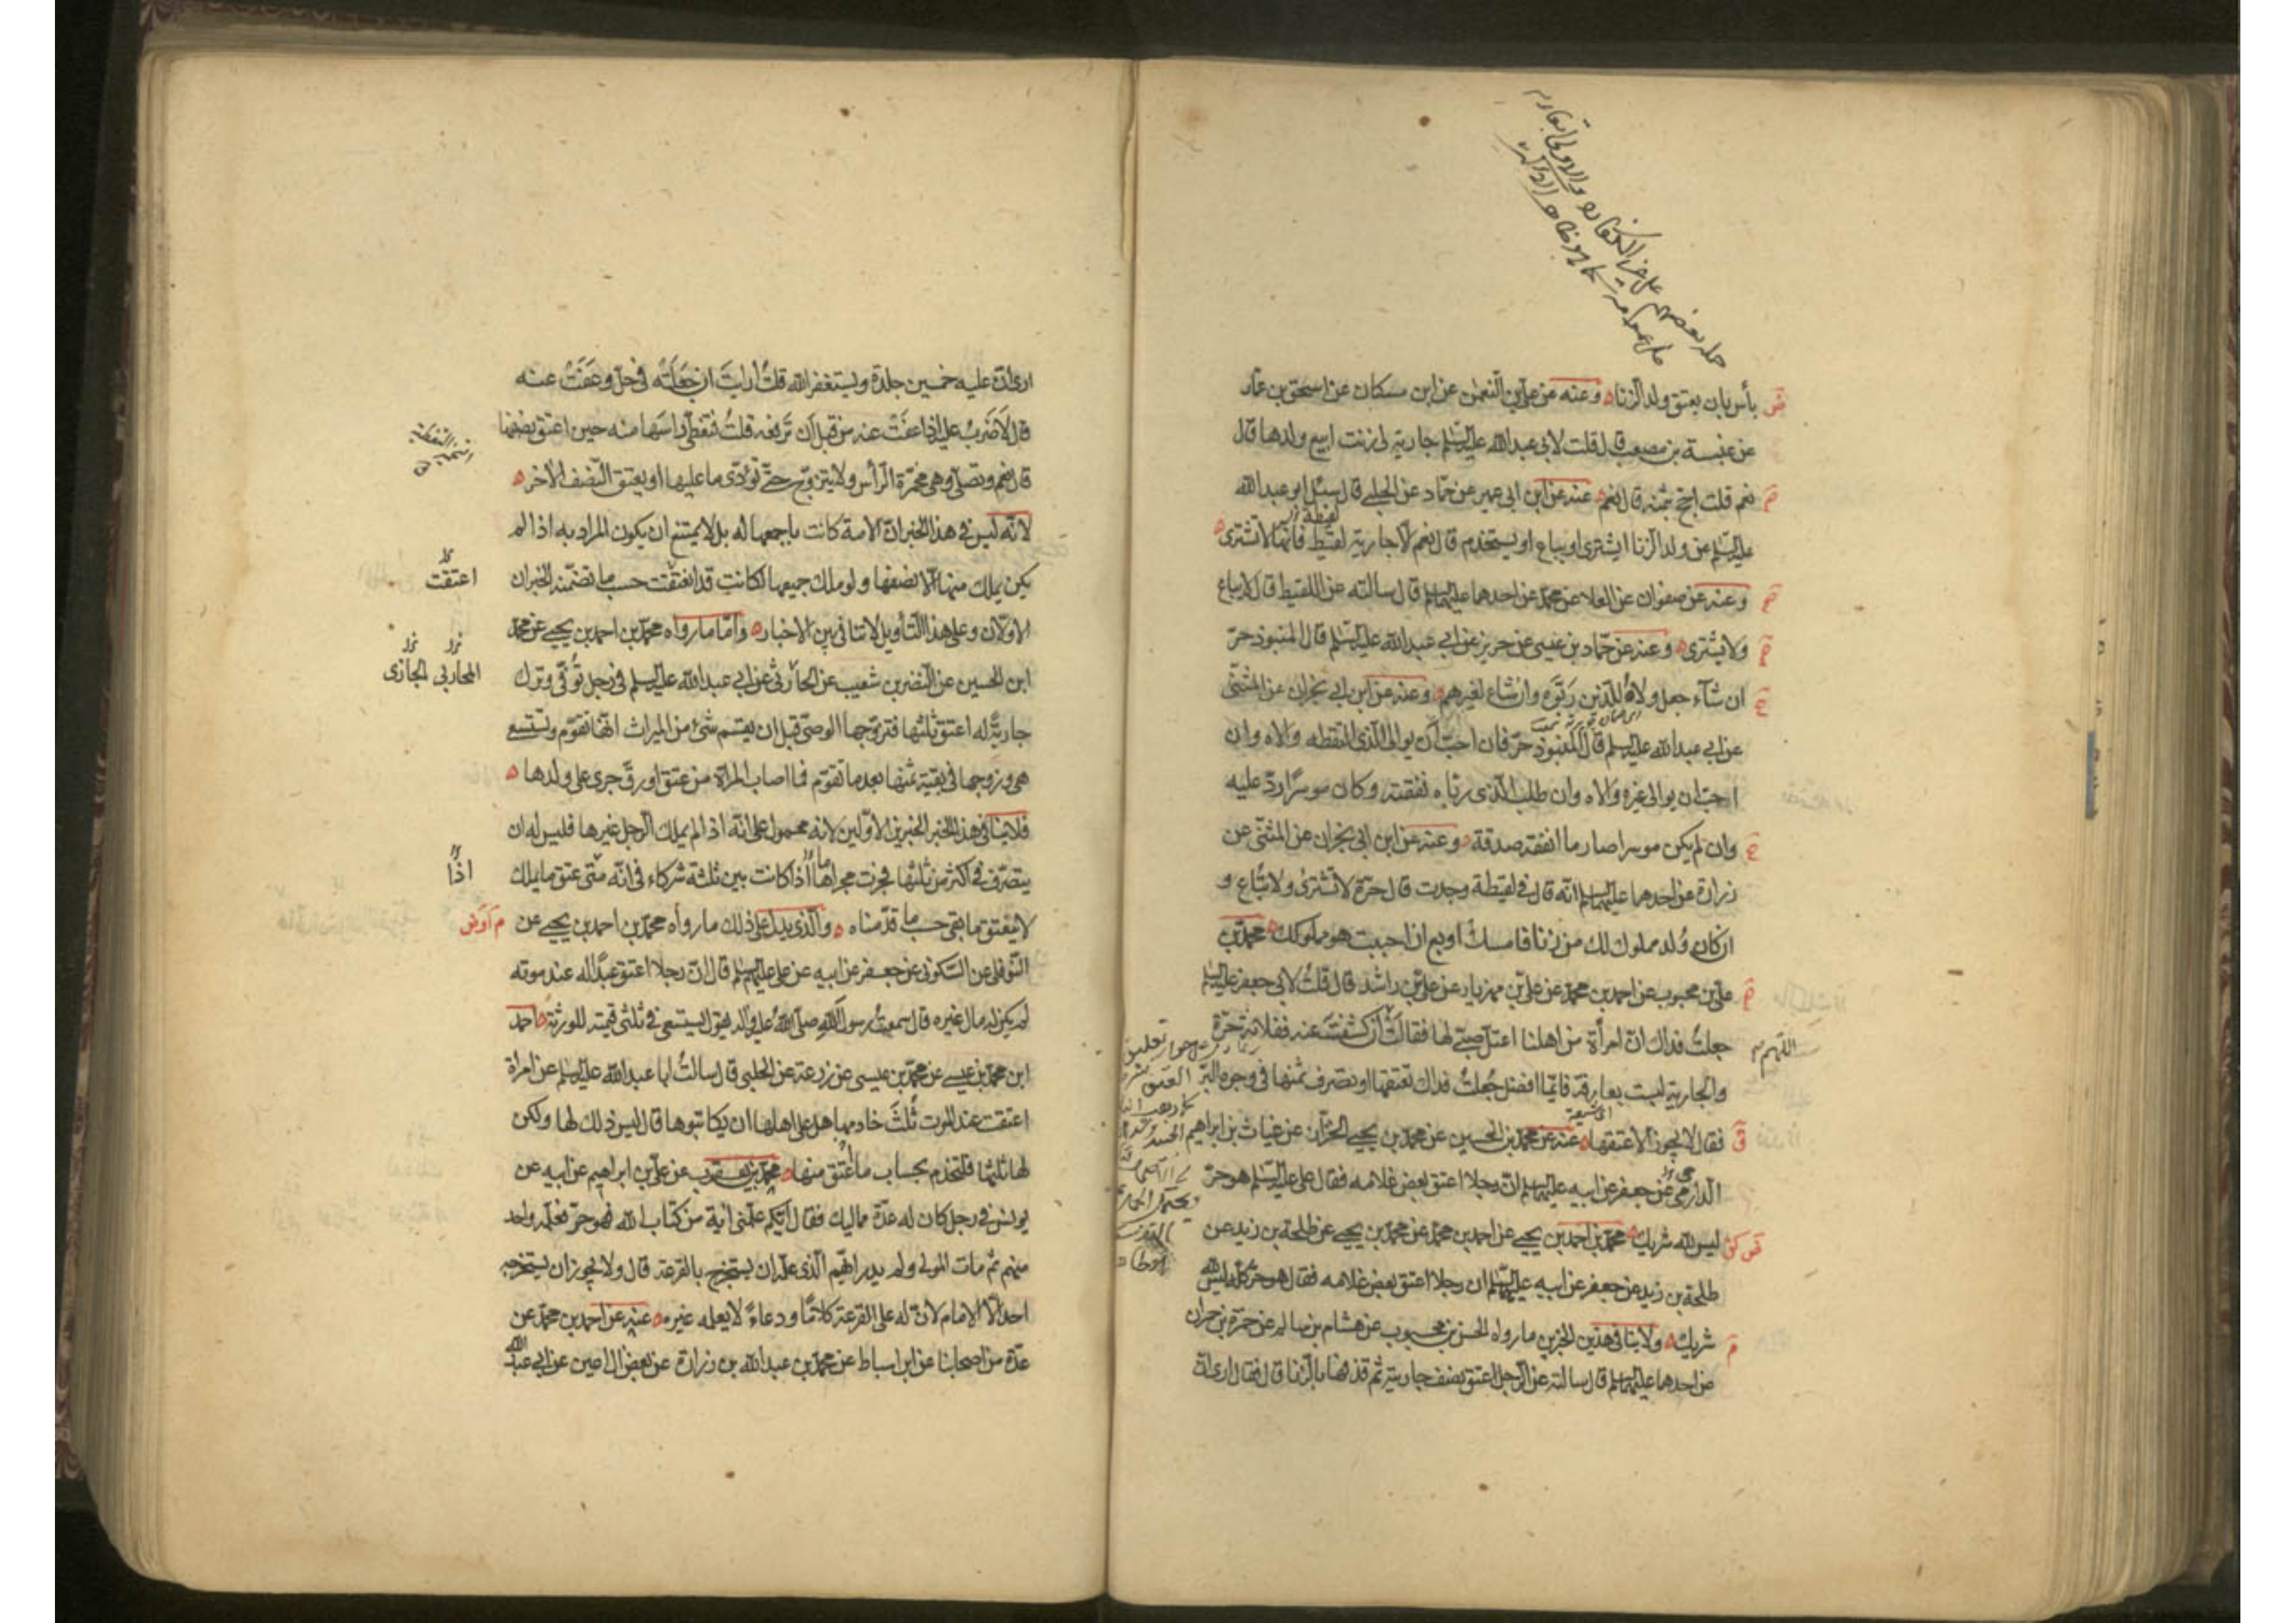 بأس بان يعتق ولد الزنا وعنه عن علي بن النعمن عن ابن مسكان عن اسحق بن عمار
عن عنبسة بن مصعب قال قلت لابي عبدالله عليه السلم جارية لي زنت ابيع ولدها قال
نعم قلت احج بثمنه قال نعم عنه عن ابن ابي عمير عن حماد عن الحلبي قال سئل ابو عبدالله
لقيطة
عليه السلم عن ولد الزنا ايشترى او يباع او يستخدم قال نعم الا جارية لقيط فانها لا تشترى
وعنه عن صفوان عن العلا عن محمد عن احدهما عليهما السلم قال سالته عن اللقيط قال لا يباع
ولا يشترى وعنه عن حماد بن عيسى عن حريز عن ابي عبدالله عليه السلم قال المنبوذ حر
ان شاء جعل ولاه للذين ربوه وان شاء لغيرهم وعنه عن ابن ابي نجران عن المثنى
عن ابي عبدالله عليه السلم قال المنبوذ حر فان احب ان يوالي الذي التقطه والاه وان
احب ان يوالي غيره والاه وان طلب الذي رباه نفقته وكان موسرا رد عليه
وان لم يكن موسرا صار ما انفقه صدقة وعنه عن ابن ابي نجران عن المثنى عن
زرارة عن احدهما عليهما السلم انه قال في لقيطة وجدت قال حرة لا تشترى ولا تباع و
ان كان ولد مملوك لك من زنا فامسك او بع ان احببت هو مملوكك محمد بن
علي بن محبوب عن احمد بن محمد عن علي بن مهزيار عن علي بن راشد قال قلت لابي جعفر عليه السلم
جعلت فداك ان امرأة من اهلنا اعتل صبي لها فقالت ان كشفت عنه ففلانة حرة
اللهم
والجارية ليست بعارفة فايما افضل جعلت فداك تعتقها او تصرف ثمنها في وجوه البر
فقال لا يجوز الا عتقها عنه عن محمد بن الحسين عن محمد بن يحيى الخزاز عن غياث بن ابراهيم
الدارمي عن جعفر عن ابيه عليهما السلم ان رجلا اعتق بعض غلامه فقال علي عليه السلم هو حر
ليس لله شريك محمد بن احمد بن يحيى عن احمد بن محمد عن محمد بن يحيى عن طلحة بن زيد عن
طلحة بن زيد عن جعفر عن ابيه عليهما السلم ان رجلا اعتق بعض غلامه فقال هو حر كله ليس لله
شريك ولا ينافي هذين الخبرين ما رواه الحسن بن محبوب عن هشام بن سالم عن حمزة بن حمران
عن احدهما عليهما السلم قال سالته عن الرجل اعتق نصف جاريته ثم قذفها بالزنا قال فقال ارى ان
ارى ان عليه خمسين جلدة ويستغفر الله قلت ارايت ان جعلته في حل وعفت عنه
قال لا ضرب عليه اذا عفت عنه من قبل ان ترفعه قلت فتغطي راسها منه حين اعتق نصفها
قال نعم وتصلي وهي مخمرة الرأس ولا يتزوج حتى تؤدي ما عليها او يعتق النصف الاخر
لانه ليس في هذا الخبر ان الامة كانت باجمعها له بل لا يمتنع ان يكون المراد به اذا لم
يكن يملك منها الا نصفها ولو ملك جميعها لكانت قد انعتقت حسب ما تضمنه الخبران
اعتقت
الاولان وعلى هذا التأويل لا تنافي بين الاخبار واما ما رواه محمد بن احمد بن يحيى عن محمد
ابن الحسين عن النضر بن شعيب عن الحارثي عن ابي عبدالله عليه السلم في رجل توفي وترك
المحاربي الجازي
جارية له اعتق ثلثها فتزوجها الوصي قبل ان يقسم شئ من الميراث انها تقوم وتستسعي
هي وزوجها في بقية ثمنها بعد ما تقوم فما اصاب المراة من عتق او رق جرى على ولدها
فلا ينافي هذا الخبر الخبرين الاولين لانه محمول على انه اذا لم يملك الرجل غيرها فليس له ان
يتصرف في اكثر من ثلثها فجرت مجراها اذا كانت بين ثلثة شركاء في انه متى عتق ما يملك
اذا
لا ينعتق ما بقي حسب ما قدمناه والذي يدل على ذلك ما رواه محمد بن احمد بن يحيى عن
النوفلي عن السكوني عن جعفر عن ابيه عن علي عليهم السلم قال ان رجلا اعتق عبدا له عند موته
لم يكن له مال غيره قال سمعت رسول الله صلى الله عليه واله يقول يستسعى في ثلثي قيمته للورثة احمد
ابن محمد بن عيسى عن محمد بن عيسى عن زرعة عن الحلبي قال سالت ابا عبدالله عليه السلم عن امراة
اعتقت عند الموت ثلث خادمها هل على اهلها ان يكاتبوها قال ليس ذلك لها ولكن
لها ثلثها فلتخدم بحساب ما اعتق منها محمد بن يعقوب عن علي بن ابراهيم عن ابيه عن
يونس في رجل كان له عدة مماليك فقال ايكم علمني اية من كتاب الله فهو حر فعلمه واحد
منهم ثم مات المولى ولم يدر ايهم الذي علمه ان يستخرج بالقرعة قال ولا يجوز ان يستخرجه
احد الا الامام لان له على القرعة كلاما ودعاء لا يعلمه غيره عنه عن احمد بن محمد عن
عدة من اصحابنا عن ابن اسباط عن محمد بن عبدالله بن زرارة عن بعض ال اعين عن ابي عبدالله